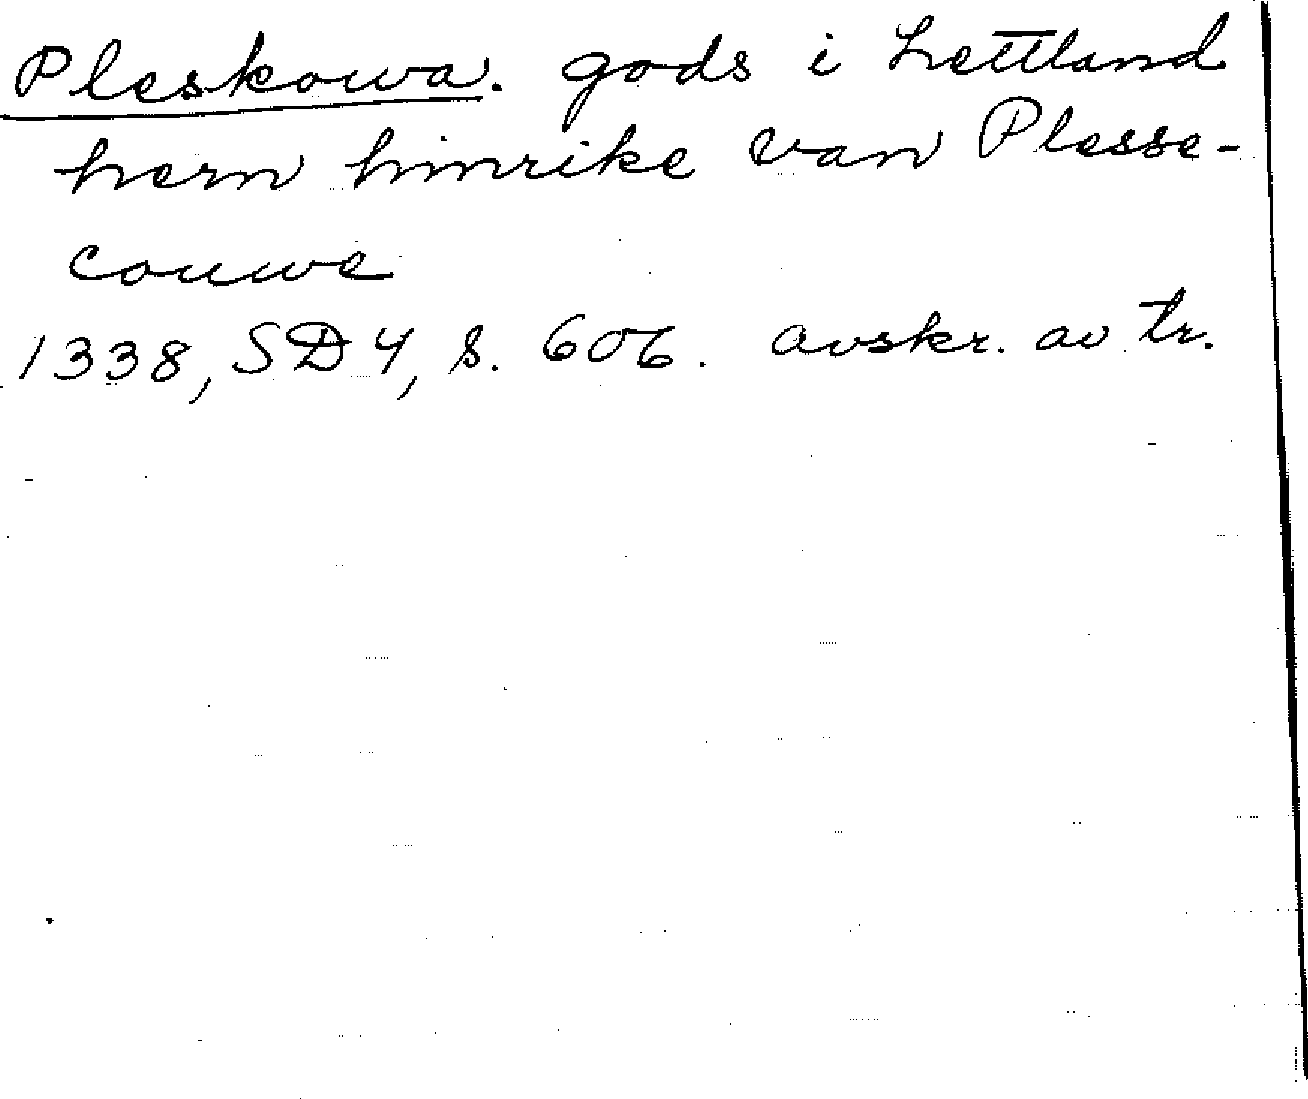 Pleskowa. gods i Lettland
hern hinrike van Plesse-
couwe
1338, SD 4, s. 606. avskr. av tr.